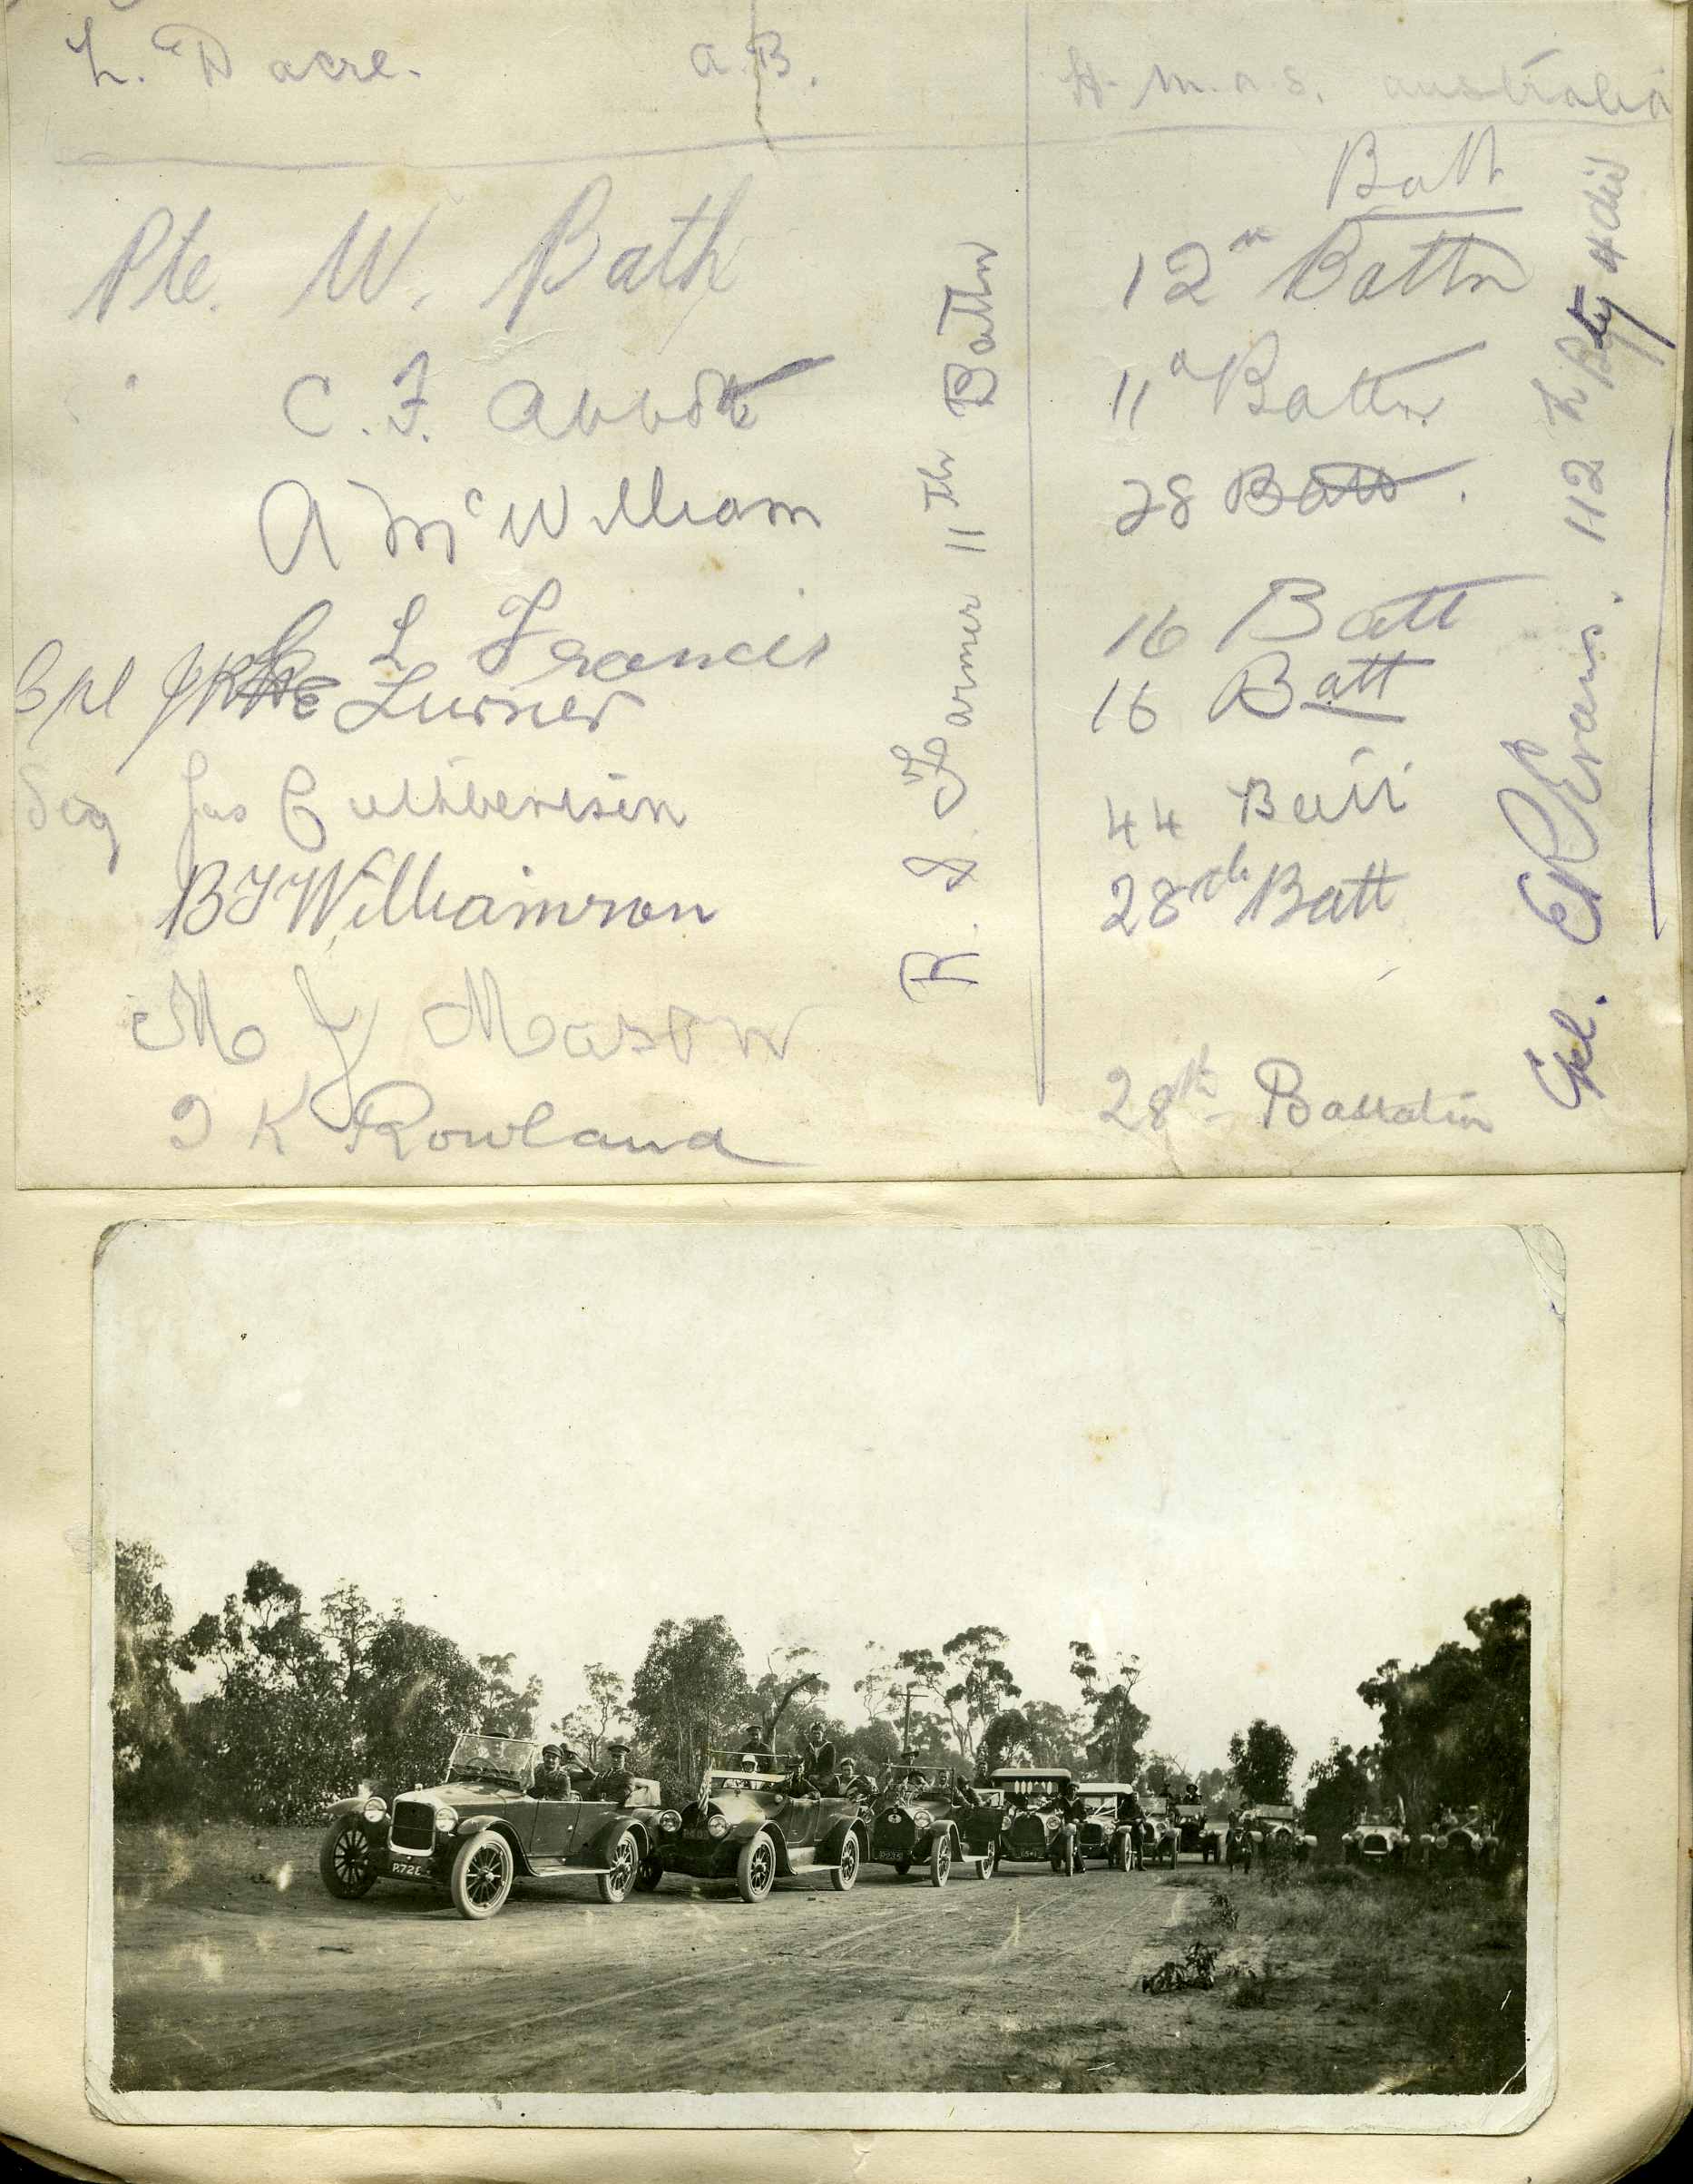 L. Dacre. A.B. H.M.A.S. Australia
Batt
Pte. W. Bath 12th Battn
C. F. Abbott 11th Battn
A McWilliam 28 Batt.
L Francis 16 Batt
Cpl Turner 16 Batt
Sig Jas Cuthbertson 44 Batt
B T Williamson 28th Batt
M J Mason
K Rowland 28th Battalion
R. J. Farmer 11th Battn
Cpl. E R Evans. 112th Bty 4 div
P.72